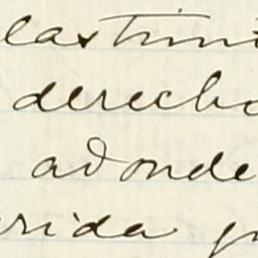 lastim
derecho
adonde
rida